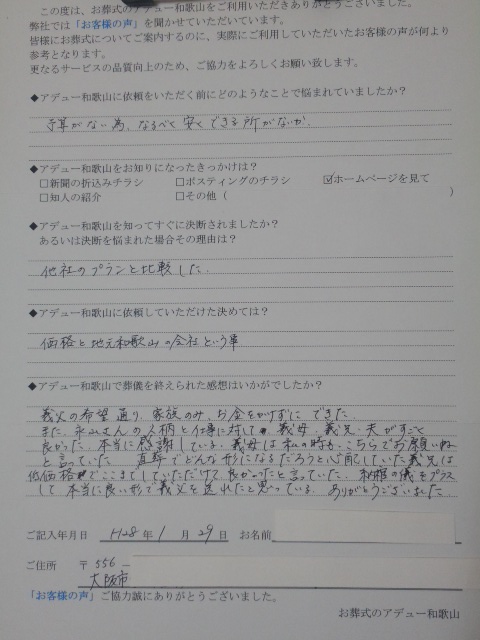 この度は、お葬式のアデュー和歌山をご利用いただきありがとうございました。
弊社では「お客様の声」を聞かせていただいています。
皆様にお葬式についてご案内するのに、実際にご利用していただいたお客様の声が何より
参考となります。
更なるサービスの品質向上のため、ご協力をよろしくお願い致します。
◆アデュー和歌山に依頼をいただく前にどのようなことで悩まれていましたか？
予算がない為、なるべく安くできる所がないか
◆アデュー和歌山をお知りになったきっかけは？
□新聞の折込みチラシ □ポスティングのチラシ ☑ホームページを見て
□知人の紹介 □その他（ ）
◆アデュー和歌山を知ってすぐに決断されましたか？
あるいは決断を悩まれた場合その理由は？
他社のプランと比較した.
◆アデュー和歌山に依頼していただけた決めては？
価格と地元和歌山の会社という事
◆アデュー和歌山で葬儀を終えられた感想はいかがでしたか？
義父の希望通り、家族のみ、お金をかけずにできた.
また、永山さんの人柄と仕事に対して、義母、義兄、夫がすごく
良かった、本当に感謝している. 義母は私の時も、こちらでお願いね
と言っていた. 直葬でどんな形になるだろうと心配していた義兄は
低価格でここまでしていただけて良かったと言っていた. 納棺の儀をプラス
して本当に良い形で義父を送れたと思っている. ありがとうございました
ご記入年月日 H28年 1月 29日 お名前
ご住所 〒556－
大阪市
「お客様の声」ご協力誠にありがとうございました。
お葬式のアデュー和歌山